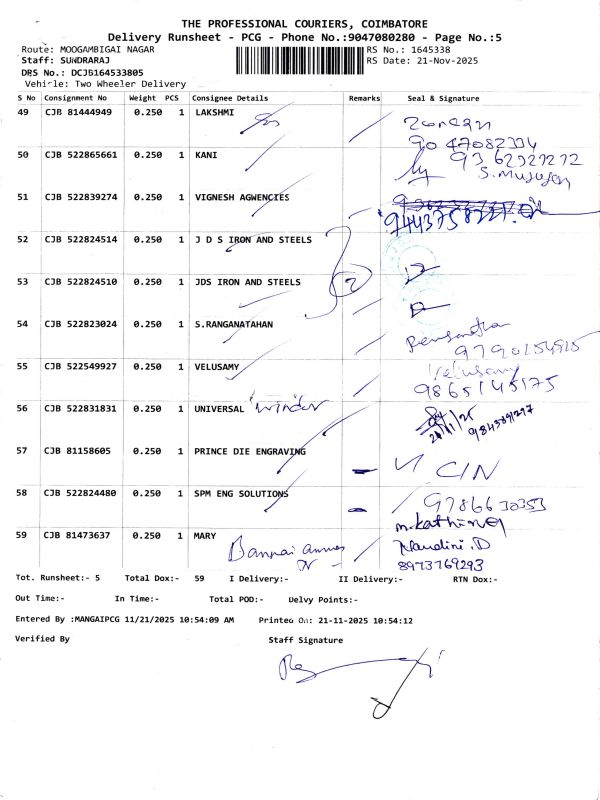 THE PROFESSIONAL COURIERS, COIMBATORE
Delivery Runsheet - PCG - Phone No.:9047080280 - Page No.:5
Route: MOOGAMBIGAI NAGAR
RS No.: 1645338
Staff: SUNDRARAJ
RS Date: 21-Nov-2025
DRS No.: DCJB164533805
Vehicle: Two Wheeler Delivery
S No Consignment No Weight PCS Consignee Details Remarks Seal & Signature
49 CJB 81444949 0.250 1 LAKSHMI
9047082334
50 CJB 522865661 0.250 1 KANI
51 CJB 522839274 0.250 1 VIGNESH AGWENCIES
52 CJB 522824514 0.250 1 J D S IRON AND STEELS
2
53 CJB 522824510 0.250 1 JDS IRON AND STEELS
54 CJB 522823024 0.250 1 S.RANGANATAHAN
9790154915
55 CJB 522549927 0.250 1 VELUSAMY
Velusamy
9865145175
56 CJB 522831831 0.250 1 UNIVERSAL window
57 CJB 81158605 0.250 1 PRINCE DIE ENGRAVING
C/N
58 CJB 522824480 0.250 1 SPM ENG SOLUTIONS
9786630353
59 CJB 81473637 0.250 1 MARY
Nandini.D
8973769293
Tot. Runsheet:- 5 Total Dox:- 59 I Delivery:- II Delivery:- RTN Dox:-
Out Time:- In Time:- Total POD:- Delvy Points:-
Entered By :MANGAIPCG 11/21/2025 10:54:09 AM Printed On: 21-11-2025 10:54:12
Verified By Staff Signature